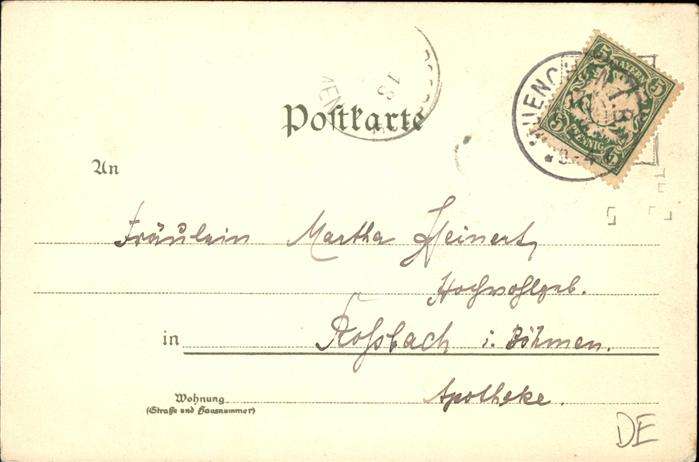 Postkarte
An
Fräulein Martha Heinert,
Hochwohlgeb.
in Roßbach i. Böhmen.
Wohnung
(Straße und Hausnummer)
Apotheke.
DE
5 BAYERN 5
5 PFENNIG 5